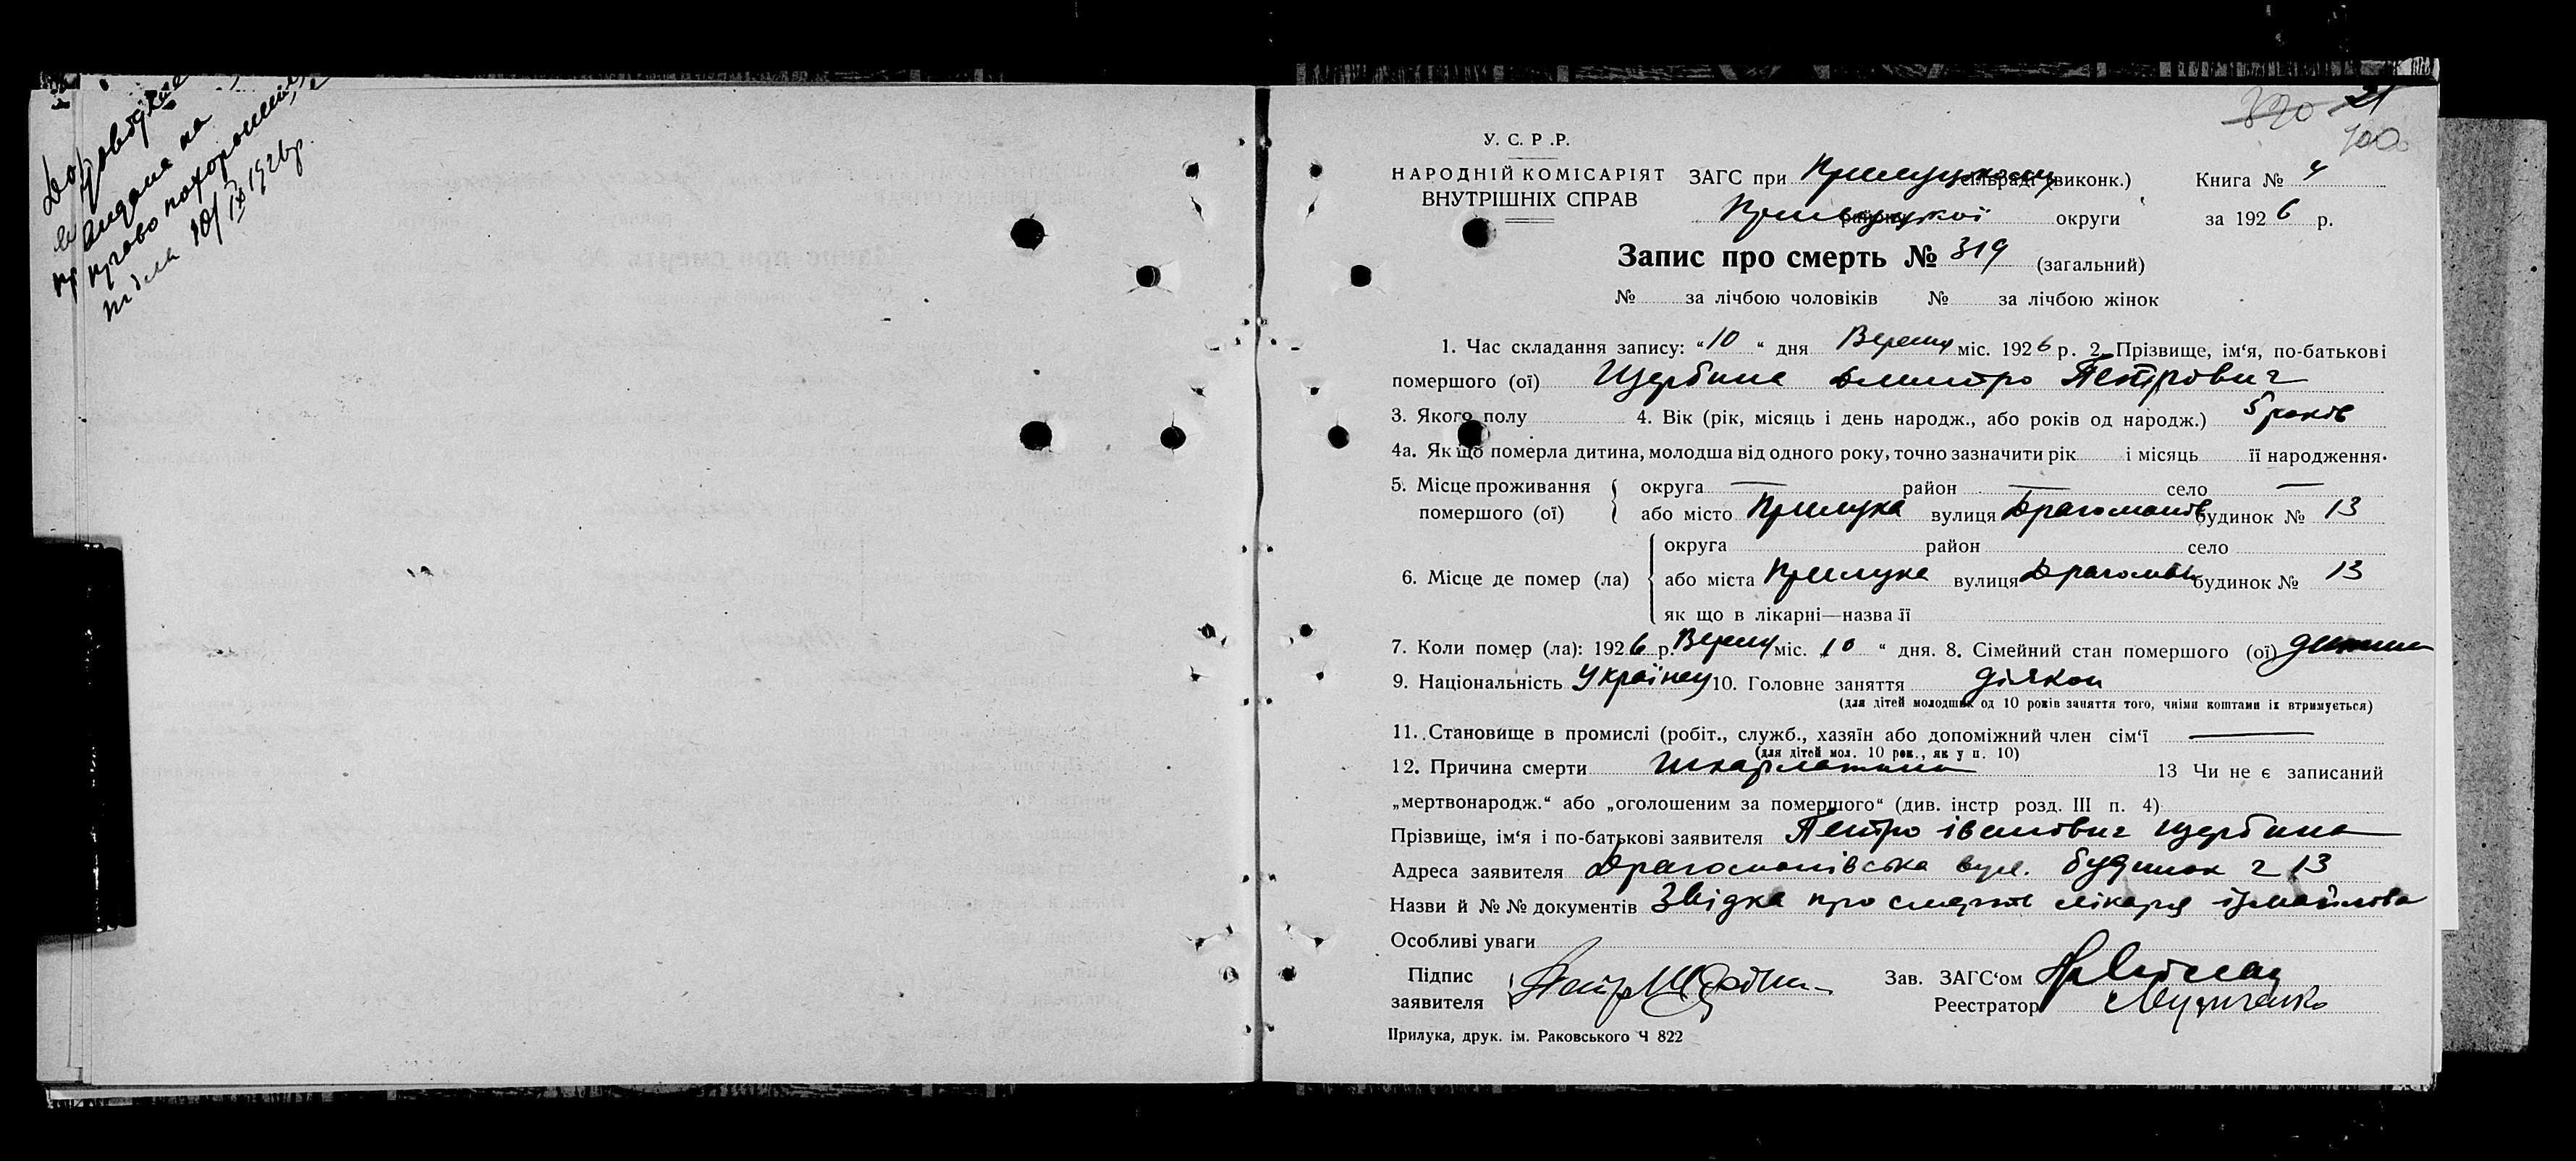 До
видана на
право похорошення
тіла 10/IX 1926 р.
21
100
У. С. Р .Р.
НАРОДНІЙ КОМІСАРІЯТ
ВНУТРІШНІХ СПРАВ
ЗАГС при Прилуцькому сільраді (виконк.)
Прилуцької району округи
Книга № 4
за 1926 р.
Запис про смерть № 319 (загальний)
№ за лічбою чоловіків № за лічбою жінок
1. Час складання запису: "10" дня Вересня міс. 1926 р. 2. Прізвище, ім‘я, по-батькові
помершого (ої) Щербина Дмитро Петрович
3. Якого полу 4. Вік (рік, місяць і день народж., або років од народж.) 5 років
4а. Як що померла дитина, молодша від одного року, точно зазначити рік і місяць її народження.
5. Місце проживання округа — район — село —
помершого (ої) або місто Прилука вулиця Драгоманів будинок № 13
округа район село
6. Місце де помер (ла) або міста Прилука вулиця Драгоман будинок № 13
як що в лікарні—назва її
7. Коли помер (ла): 1926 р. Вересн міс. 10 " дня. 8. Сімейний стан помершого (ої) дитина
9. Національність Українець 10. Головне заняття діякон
(для дітей молодших од 10 років заняття того, чиїми коштами їх втримується)
11. Становище в промислі (робіт., служб., хазяїн або допоміжний член сім‘ї —
(для дітей мол. 10 рок., як у п. 10)
12. Причина смерти Шкарлатина 13 Чи не є записаний
„мертвонародж.“ або „оголошеним за помершого“ (див. інстр розд. III п. 4)
Прізвище, ім‘я і по-батькові заявителя Петро іванович Щербина
Адреса заявителя Драгоманівська вул. будинок ч 13
Назви й №№ документів Звідка про смерть лікаря ізмайлова
Особливі уваги
Підпис
заявителя
Зав. ЗАГС‘ом
Реестратор
Прилука, друк. ім. Раковського Ч 822